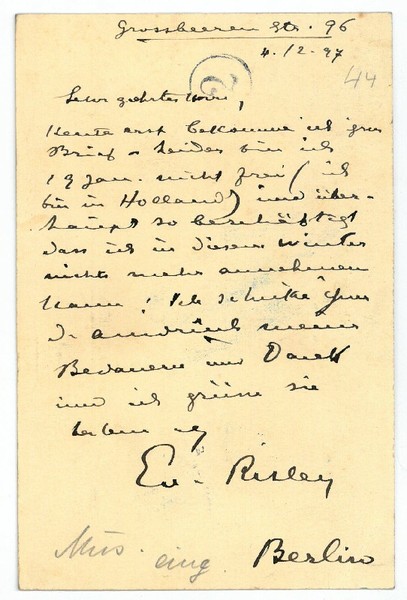 Grossbeeren Str. 96
4./2.97
2
44
Sehr geehrter Herr,
Heute erst bekomme ich Ihren
Brief - Leider bin ich
19 Jan. nicht frei (ich
bin in Holland) und über-
haupt so beschäftigt
dass ich in diesem Winter
nichts mehr annehmen
kann! Ich schicke Ihnen
d. meines
Bedauern und Dank
und ich grüsse sie
Risley
eing. Berlin